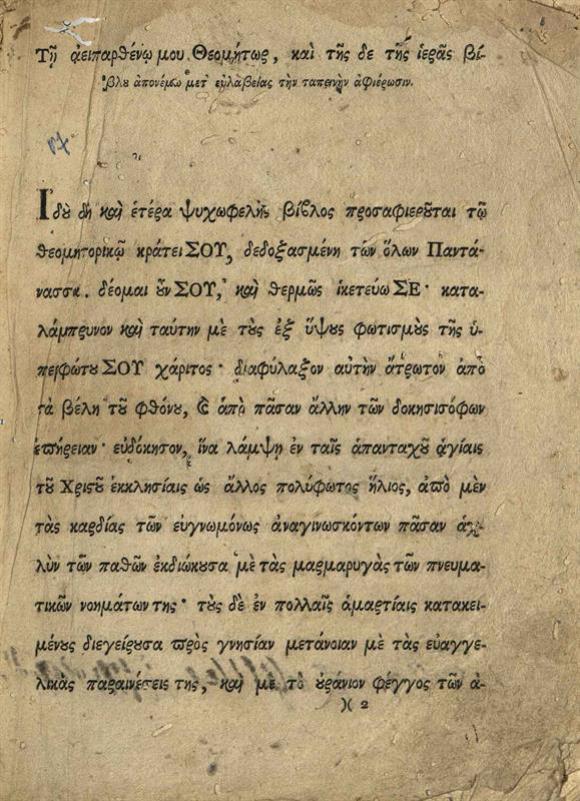 Τῇ ἀειπαρθένῳ μου Θεομήτορ, καὶ τῆς δε τῆς ἱερᾶς βί-
βλου ἀπονέμω μετ' εὐλαβείας τὴν ταπεινὴν ἀφιέρωσιν.
Ἰδοὺ δὴ καὶ ἑτέρα ψυχωφελὴς βίβλος προσαφιεροῦται τῷ
θεομητορικῷ κράτει ΣΟΥ, δεδοξασμένη τῶν ὅλων Παντά-
νασσα. δέομαι οὖν ΣΟΥ, καὶ θερμῶς ἱκετεύω ΣΕ· κατα-
λάμπρυνον καὶ ταύτην μὲ τοὺς ἐξ ὕψους φωτισμοὺς τῆς ὑ-
περφώτου ΣΟΥ χάριτος· διαφύλαξον αὐτὴν ἄτρωτον ἀπὸ
τὰ βέλη τοῦ φθόνου, καὶ ἀπὸ πᾶσαν ἄλλην τῶν δοκησισόφων
ἐπήρειαν· εὐδόκησον, ἵνα λάμψῃ ἐν ταῖς ἁπανταχοῦ ἁγίαις
τοῦ Χριστοῦ ἐκκλησίαις ὡς ἄλλος πολύφωτος ἥλιος, ἀπὸ μὲν
τὰς καρδίας τῶν εὐγνωμόνως ἀναγινωσκόντων πᾶσαν ἀχ-
λὺν τῶν παθῶν ἐκδιώκουσα μὲ τὰς μαρμαρυγὰς τῶν πνευμα-
τικῶν νοημάτων της· τοὺς δὲ ἐν πολλαῖς ἁμαρτίαις κατακει-
μένους διεγείρουσα πρὸς γνησίαν μετάνοιαν μὲ τὰς εὐαγγε-
λικὰς παραινέσεις της, καὶ μὲ τὸ οὐράνιον φέγγος τῶν ἀ-
)( 2